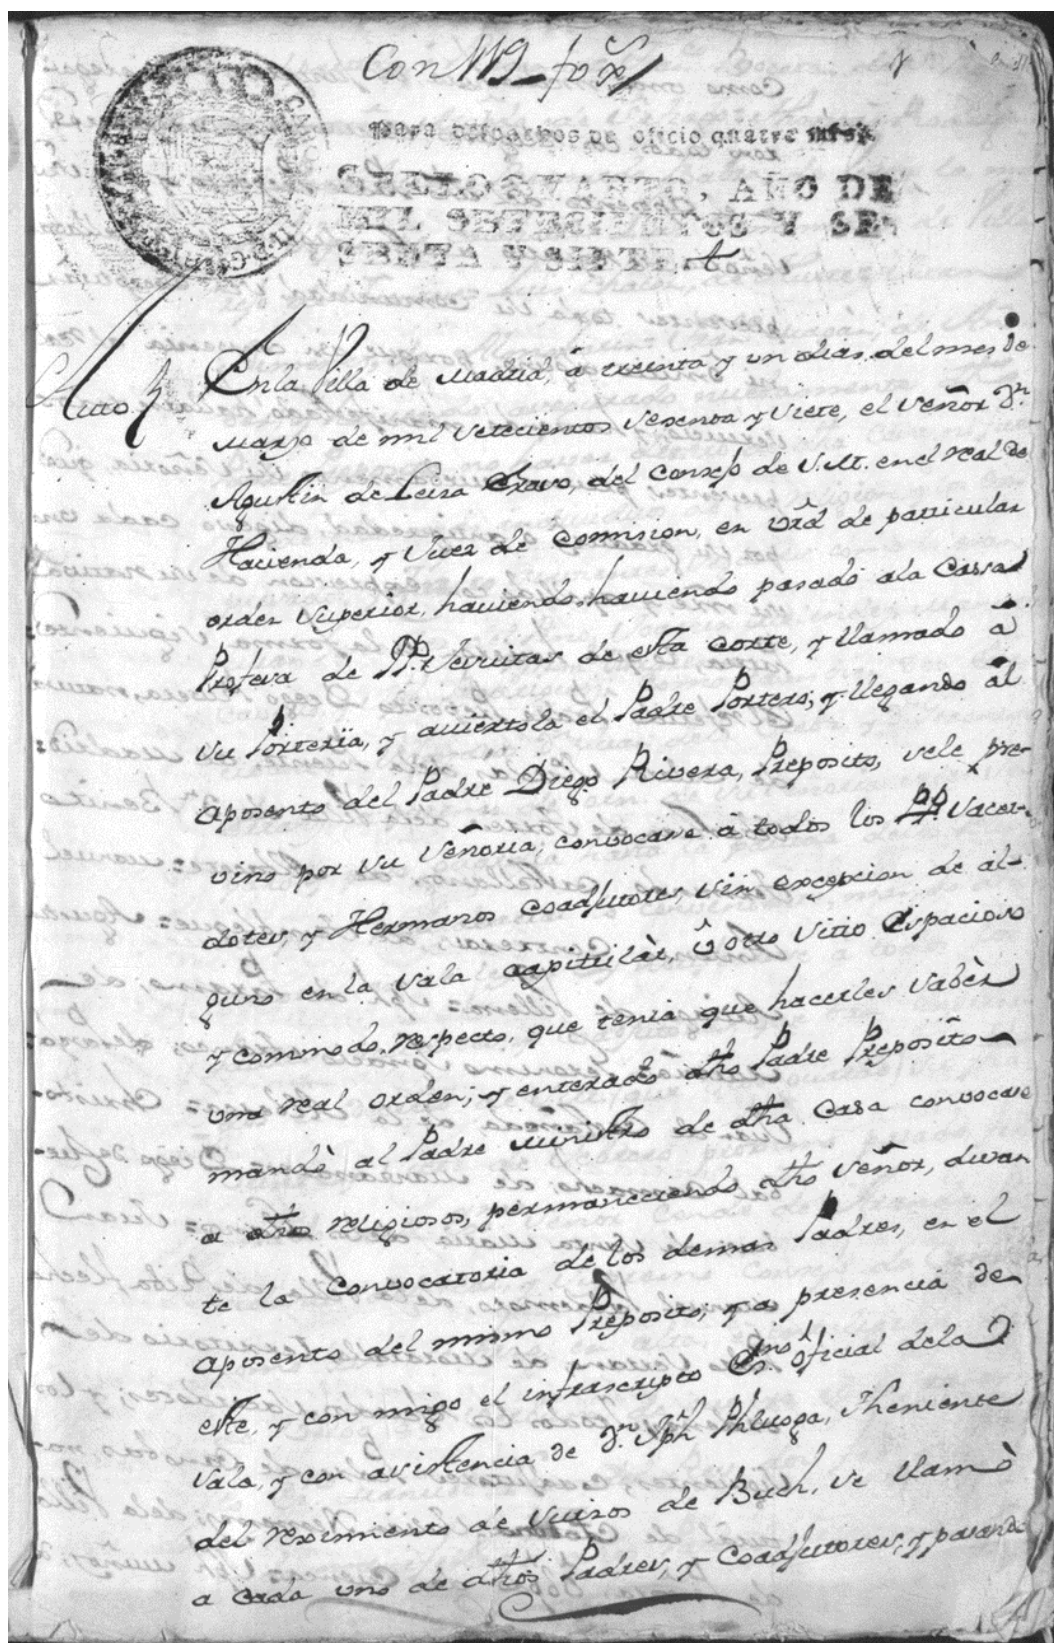 Con 119 fox.
Para despachos de oficio quatro mrs.
SELLO QVARTO, AÑO DE
MIL SETECIENTOS Y SE-
SENTA Y SIETE.
Auto
En la Villa de Madrid, â treinta y un dias del mes de
Marzo de mil setecientos sesenta y siete, el señor Dn.
Agustin de Leiza Eraso, del Consejo de S.M. en el real de
Hacienda, y Juez de Comision, en vrd de particular
orden superior, haviendo, haviendo pasado ala Cassa
Profesa de PP. Jesuitas de esta Corte, y llamado â
su Porteria, y aviertola el Padre Portero; y llegando âl
aposento del Padre Diego Rivera, Preposito, sele pre-
vino por su señoria, convocase â todos los PP. sacer-
dotes, y Hermanos Coadjutores, sin excepcion de âl-
guno en la sala capitulàr, û otro sitio espacioso
y commodo, respecto, que tenia que hacerles sabèr
una real orden; y enterado dho Padre Preposito
mandò al Padre Ministro de dha Casa convocase
a dhos religiosos, permaneciendo dho señor, duran
te la convocatoria de los demas Padres, en el
aposento del mismo Preposito; y a presencia de
este, y con migo el infrascripto Esno. oficial dela
sala, y con asistencia de Dn. Jph Phluoga, Theniente
del reximiento de suizos de Buch, se llamò
a cada uno de dhos Padres, y Coadjutores, y pasando